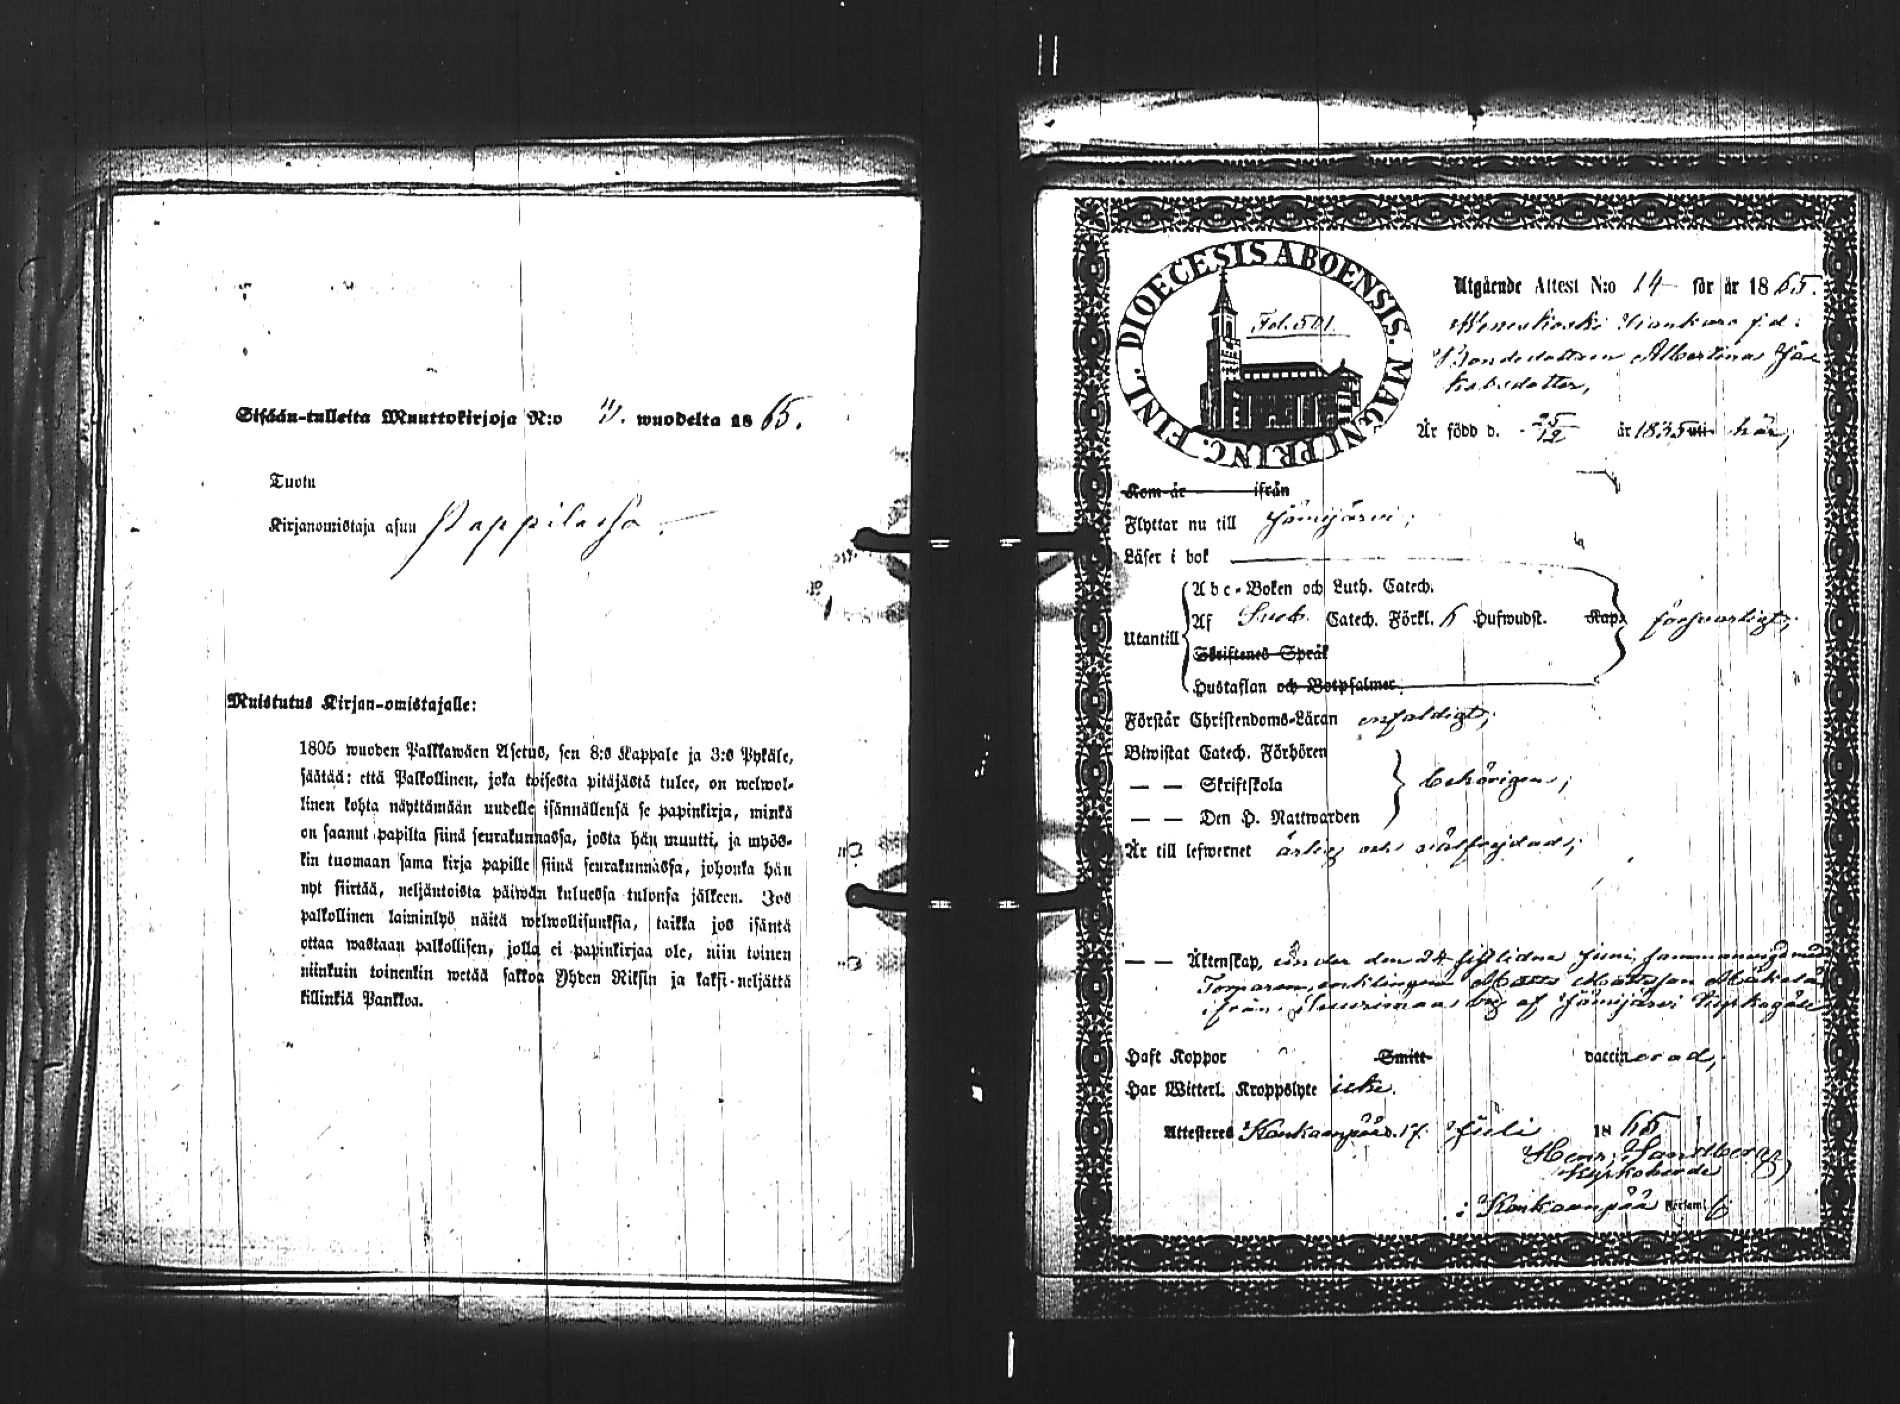 Sisään-tulleita Muuttokirjoja N:o 11. wuodelta 1865.
Tuotu
Kirjanomistaja asuu Pappilassa.
Muistutus Kirjan-omistajalle:
1805 wuoden Palkkawäen Asetus, sen 8:s Kappale ja 3:s Pykäle,
säätää: että Palkollinen, joka toisesta pitäjästä tulee, on welwol-
linen kohta näyttämään uudelle isännällensä se papinkirja, minkä
on saanut papilta siinä seurakunnassa, josta hän muutti, ja myös-
kin tuomaan sama kirja papille siinä seurakunnassa, johonka hän
nyt siirtää, neljäntoista päiwän kuluessa tulonsa jälkeen. Jos
palkollinen laiminlyö näitä welwollisuuksia, taikka jos isäntä
ottaa wastaan palkollisen, jolla ei papinkirjaa ole, niin toinen
niinkuin toinenkin wetää sakkoa Yhden Riksin ja kaksi-neljättä
killinkiä Pankkoa.
DIOECESIS ABOENSIS. MAGNI PRINC. FINL.
Fol. 501.
Utgående Attest N:o 14 för år 1865.
f. d.
Bondedottren Albertina Jä-
kabsdotter,
Är född d. 25/12 år 1835 uti här;
Kom år ifrån
Flyttar nu till Jämijärvi;
Läser i bok
Utantill
Abc-Boken och Luth. Catech.
Af Sveb. Catech. Förkl. 6 Hufwudst. Kap.
Skriftenes Språk
Hustaflan och Botpsalmer.
försvarligt;
Förstår Christendoms-Läran enfaldigt;
Biwistat Catech. Förhören
— — Skriftskola
— — Den H. Nattwarden
behörigen;
Är till lefwernet ärlig och välfrejdad;
— — Äktenskap, under den 24 sistlidne Juni, sammanvigd med
Torparen, enklingen Matts Mattsson Mäkelä
ifrån by af Jämijärvi
Haft Koppor Smitt vaccinerad;
Har Witterl. Kroppslyte icke.
Attesteras Kankaanpää d. 17 Juli 1865
Henr. Sandberg
Kyrkoherde
i Kankaanpää Församl.